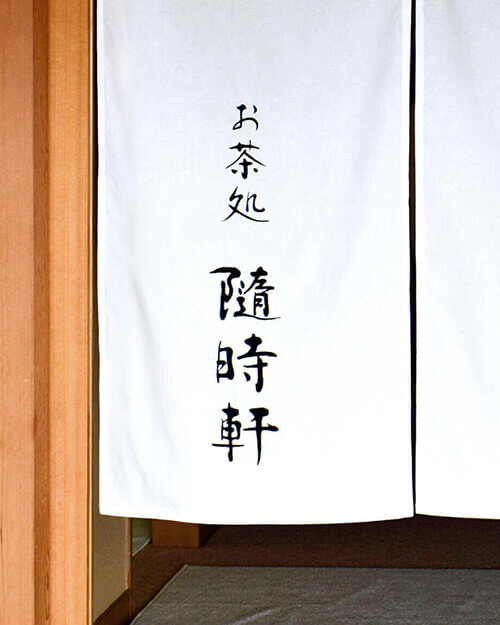 お茶処
隨時軒